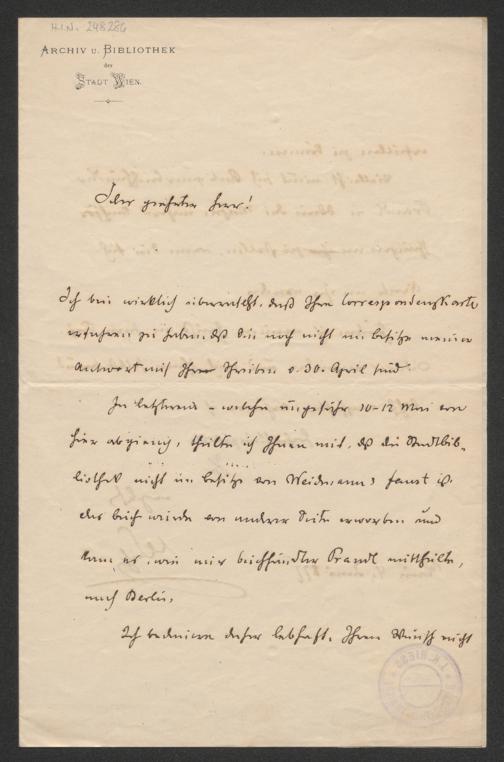 H.I.N. 248286
ARCHIV U. BIBLIOTHEK
der
STADT WIEN.
Sehr geehrter Herr!
Ich bin wirklich überrascht, durch Ihre Correspondenzkarte
erfahren zu haben, dß Sie noch nicht im Besitze meiner
Antwort auf Ihr Schreiben v. 30. April sind.
In letzterem – welches ungefähr 10–12 Mai von
hier abgieng, theilte ich Ihnen mit, dß die Stadtbib-
liothek nicht im Besitze von Weidmann's Faust ist.
das Buch wurde von anderer Seite erworben und
kam es, wie mir Buchhändler Prandl mittheilte,
nach Berlin.
Ich bedaure daher lebhaft, Ihren Wunsch nicht